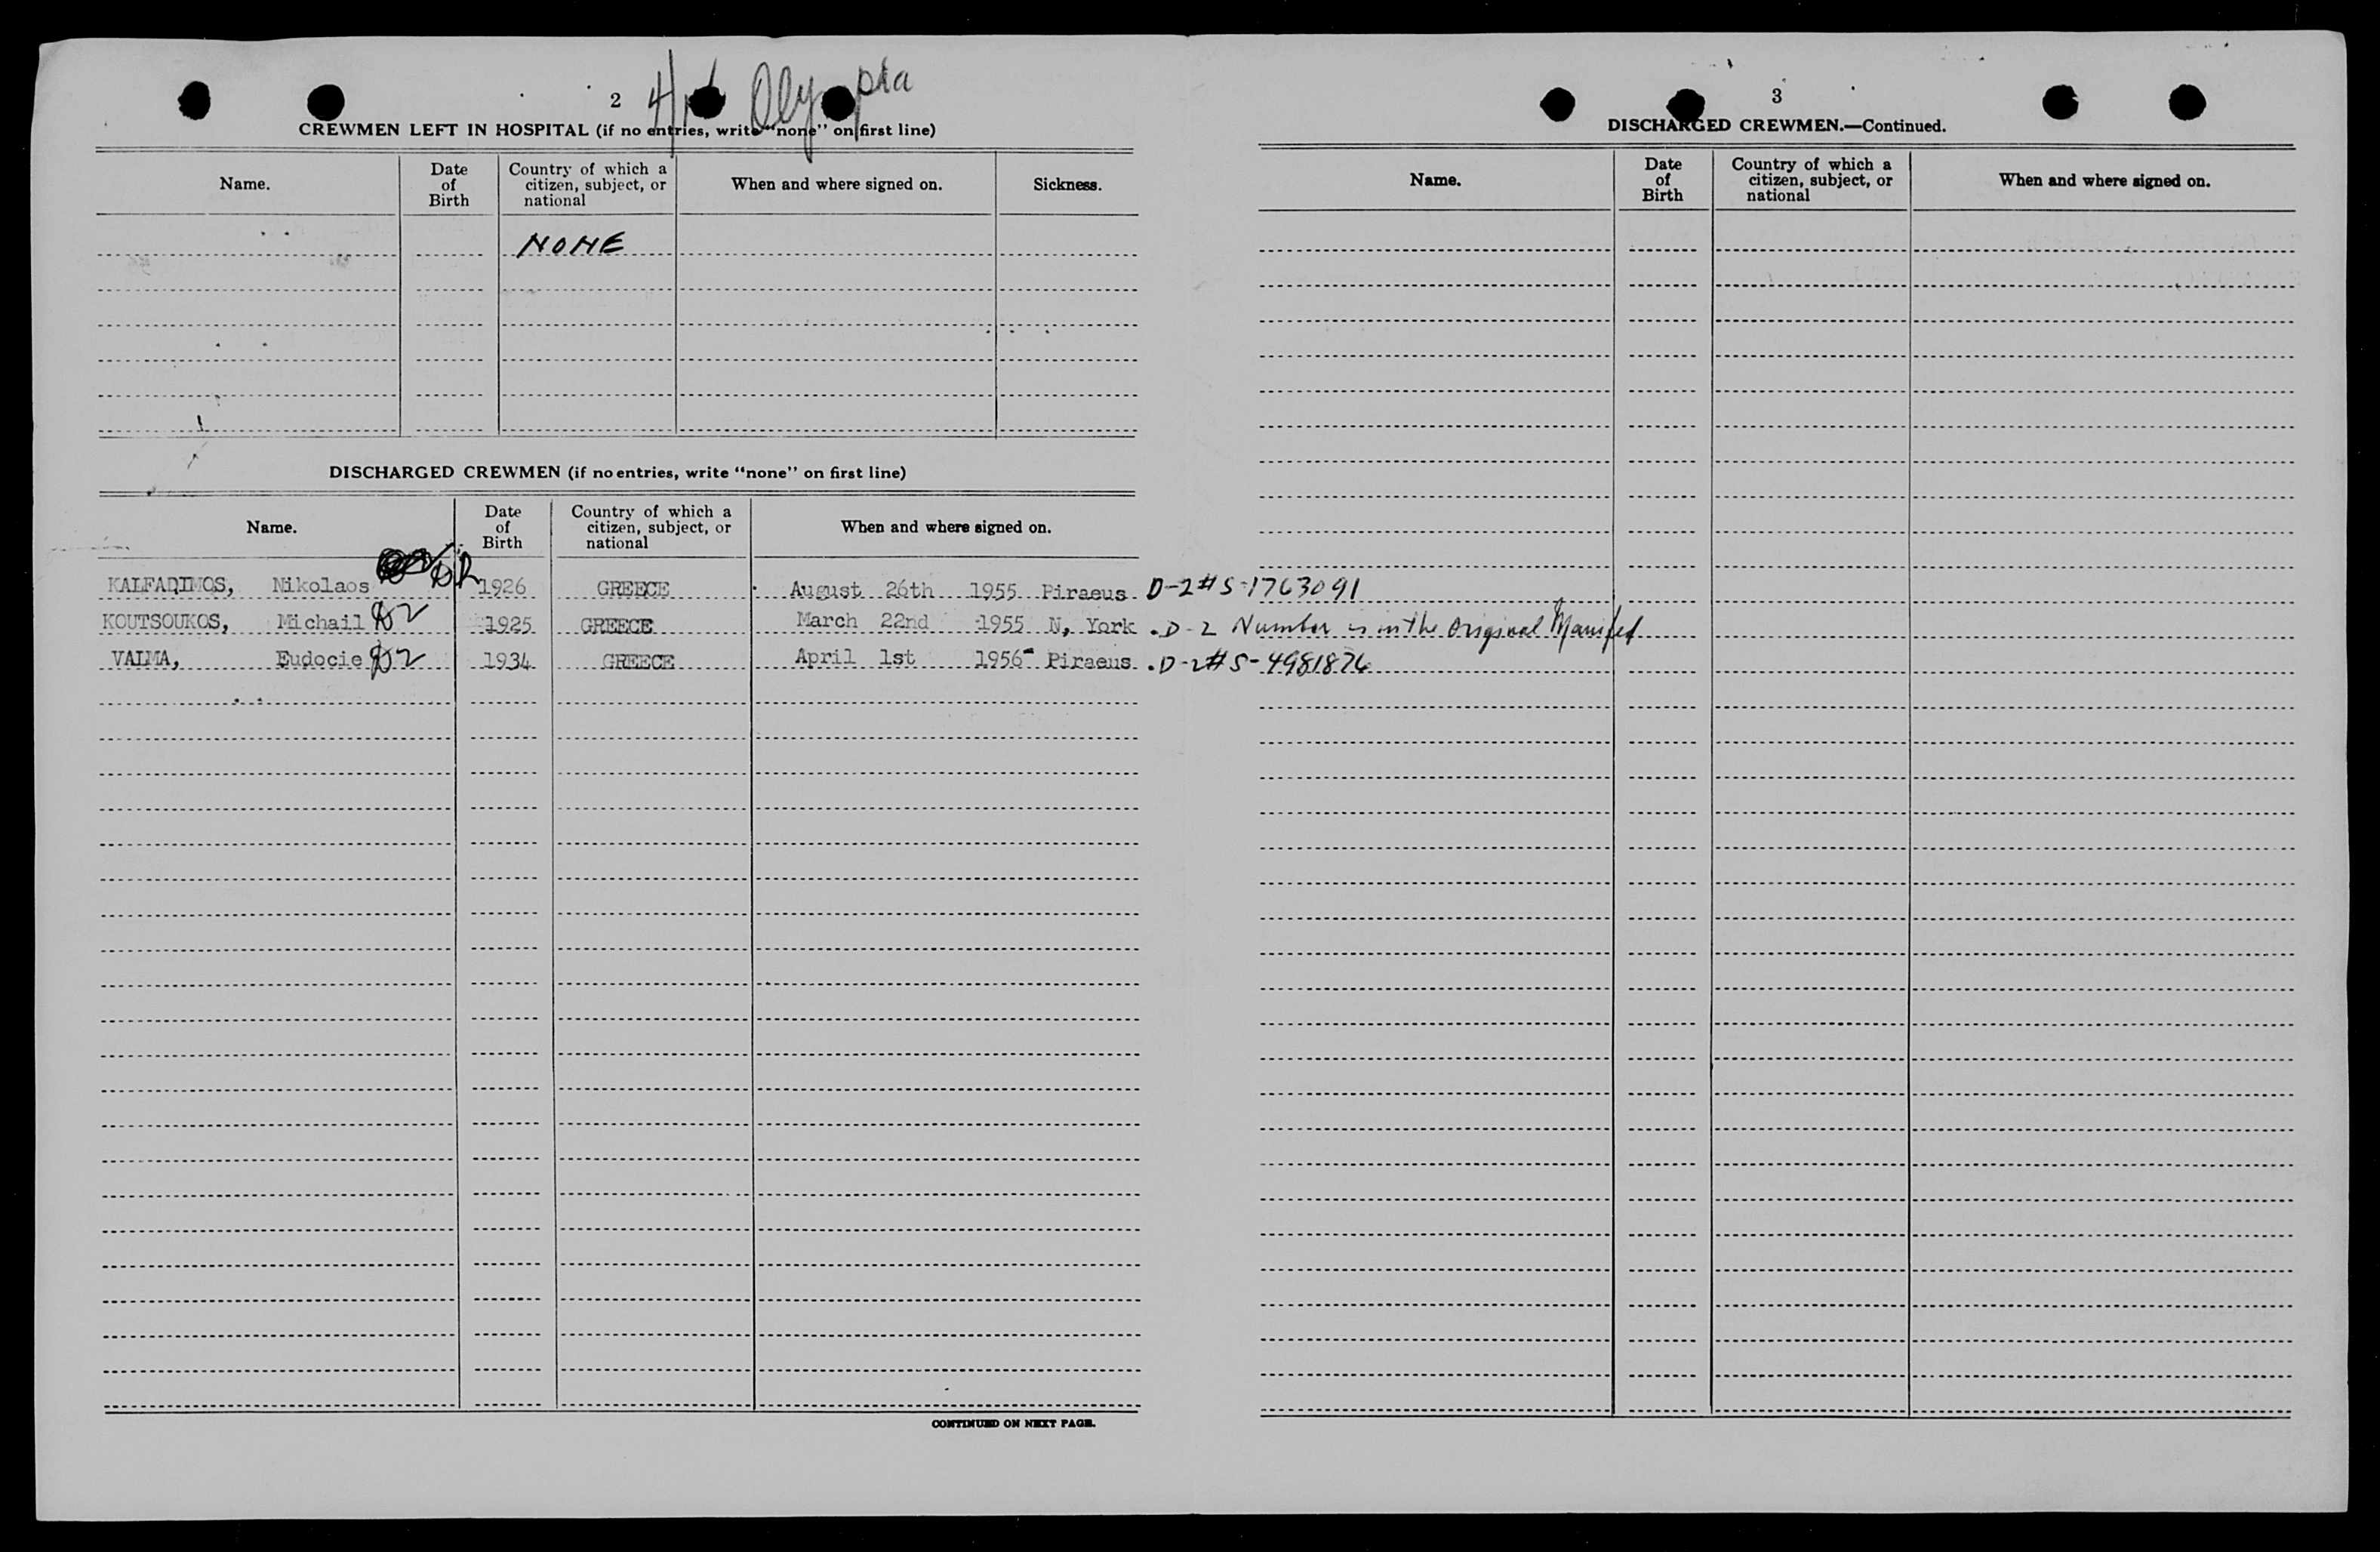 2
Olympia
CREWMEN LEFT IN HOSPITAL (if no entries, write "none" on first line)
Name. Date of Birth Country of which a citizen, subject, or national When and where signed on. Sickness.
NONE
DISCHARGED CREWMEN (if no entries, write "none" on first line)
Name. Date of Birth Country of which a citizen, subject, or national When and where signed on.
KALFADIMOS, Nikolaos 1926 GREECE August 26th 1955 Piraeus D-2 # S-1763091
KOUTSOUKOS, Michail D2 1925 GREECE March 22nd 1955 N, York . D-2 Number is in the Original Manifest
VALMA, Eudocie D2 1934 GREECE April 1st 1956- Piraeus . D-2 # S-4981876
CONTINUED ON NEXT PAGE.
3
DISCHARGED CREWMEN.—Continued.
Name. Date of Birth Country of which a citizen, subject, or national When and where signed on.